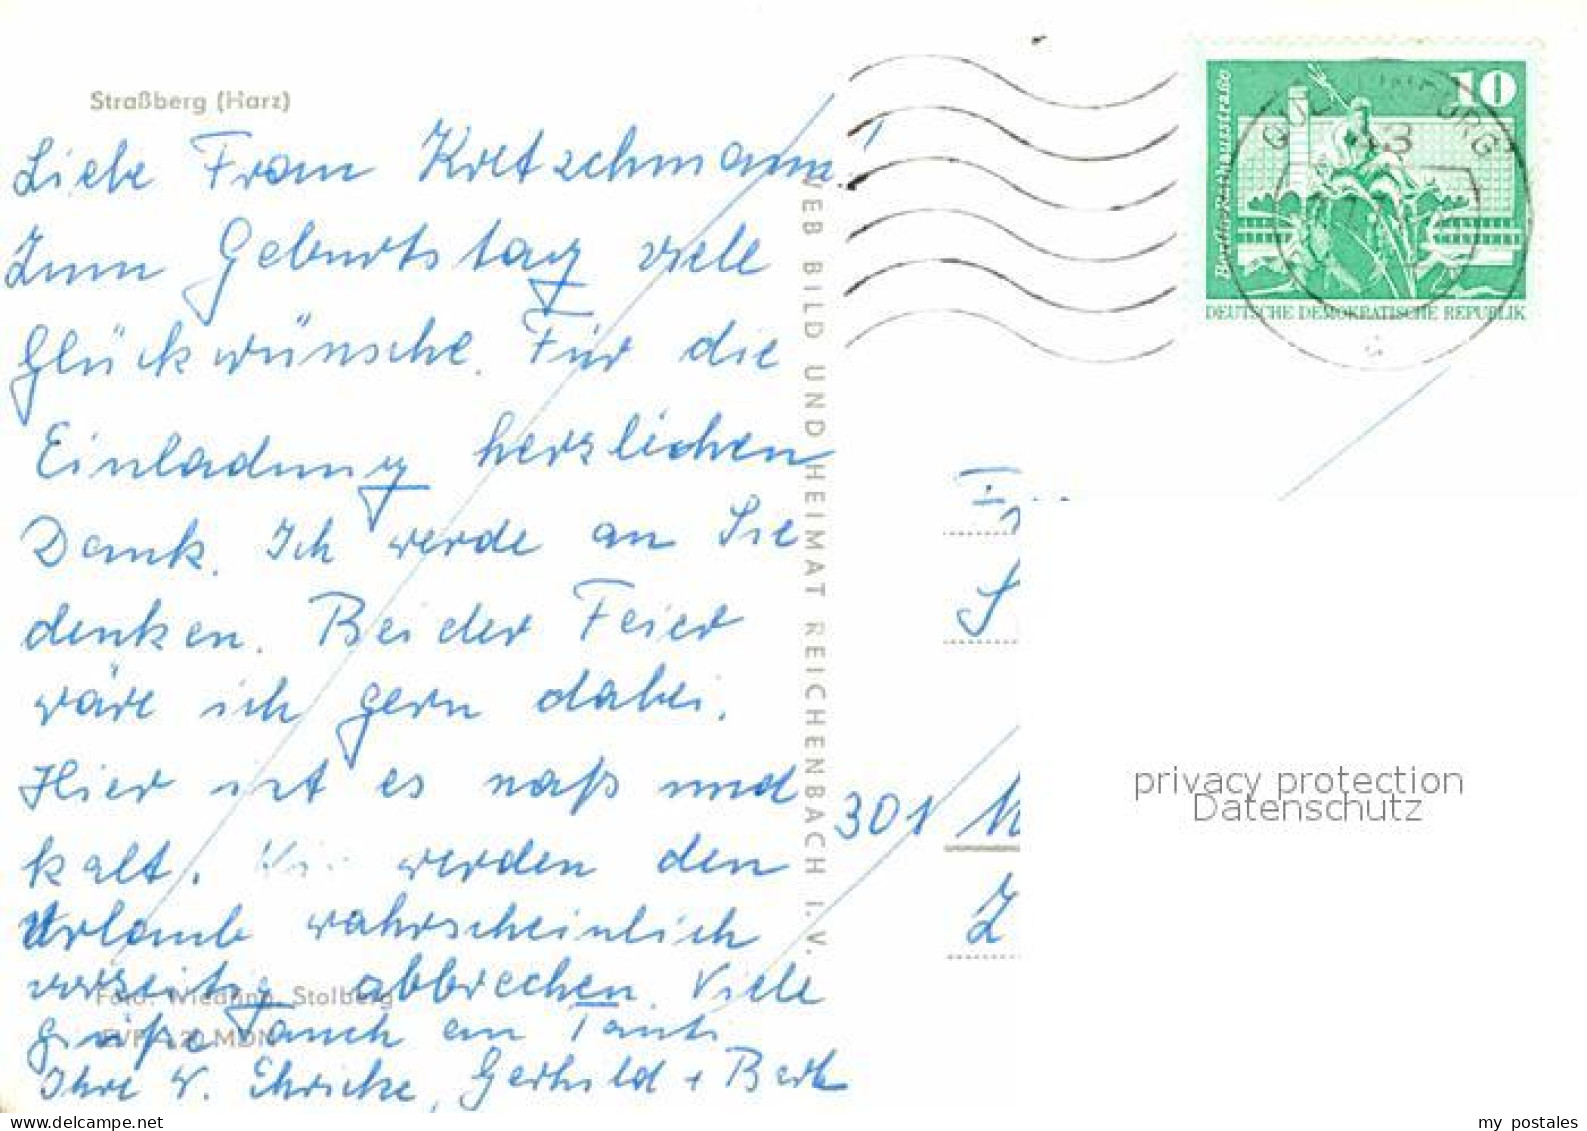 Straßberg (Harz)
Liebe Frau Kretzschmann!
Zum Geburtstag viele
Glückwünsche. Für die
Einladung herzlichen
Dank. Ich werde an Sie
denken. Bei der Feier
wäre ich gern dabei.
Hier ist es naß und
kalt. Wir werden den
Urlaub wahrscheinlich
vorzeitig abbrechen. Viele
Grüße auch an Tante
Ihre
Gerhild + 
Foto: Wiedling, Stolberg
MDN
VEB BILD UND HEIMAT REICHENBACH I. V.
10
Berlin-Rathausstraße
DEUTSCHE DEMOKRATISCHE REPUBLIK
301 M
privacy protection
Datenschutz
www.delcampe.net
my postales